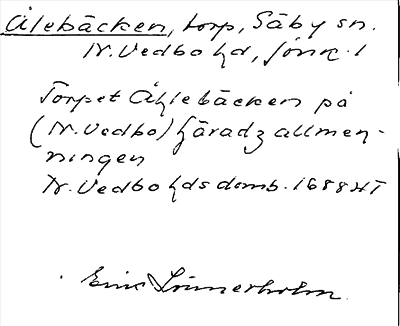 Ålebäcken, torp, Säby sn.
N. Vedbo hd, Jönk. l
Torpet Åhlebäcken på
(N. Vedbo) häradz allmen-
ningen
N. Vedbo hds domb. 1688 HT
Eric Linnerholm